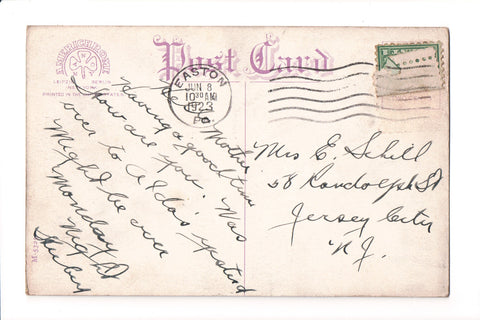 Post Card
AMERICHROME
LEIPZIG BERLIN
NEW YORK
PRINTED IN THE UNITED STATES
EASTON
JUN 8
10 30 AM
1923
PA.
Mother
Having a good time
How are you. Was
over to Alda's yesterd
Might be over
Monday
Night
Mrs E. Schill
58 Randolph St
Jersey City
N.J.